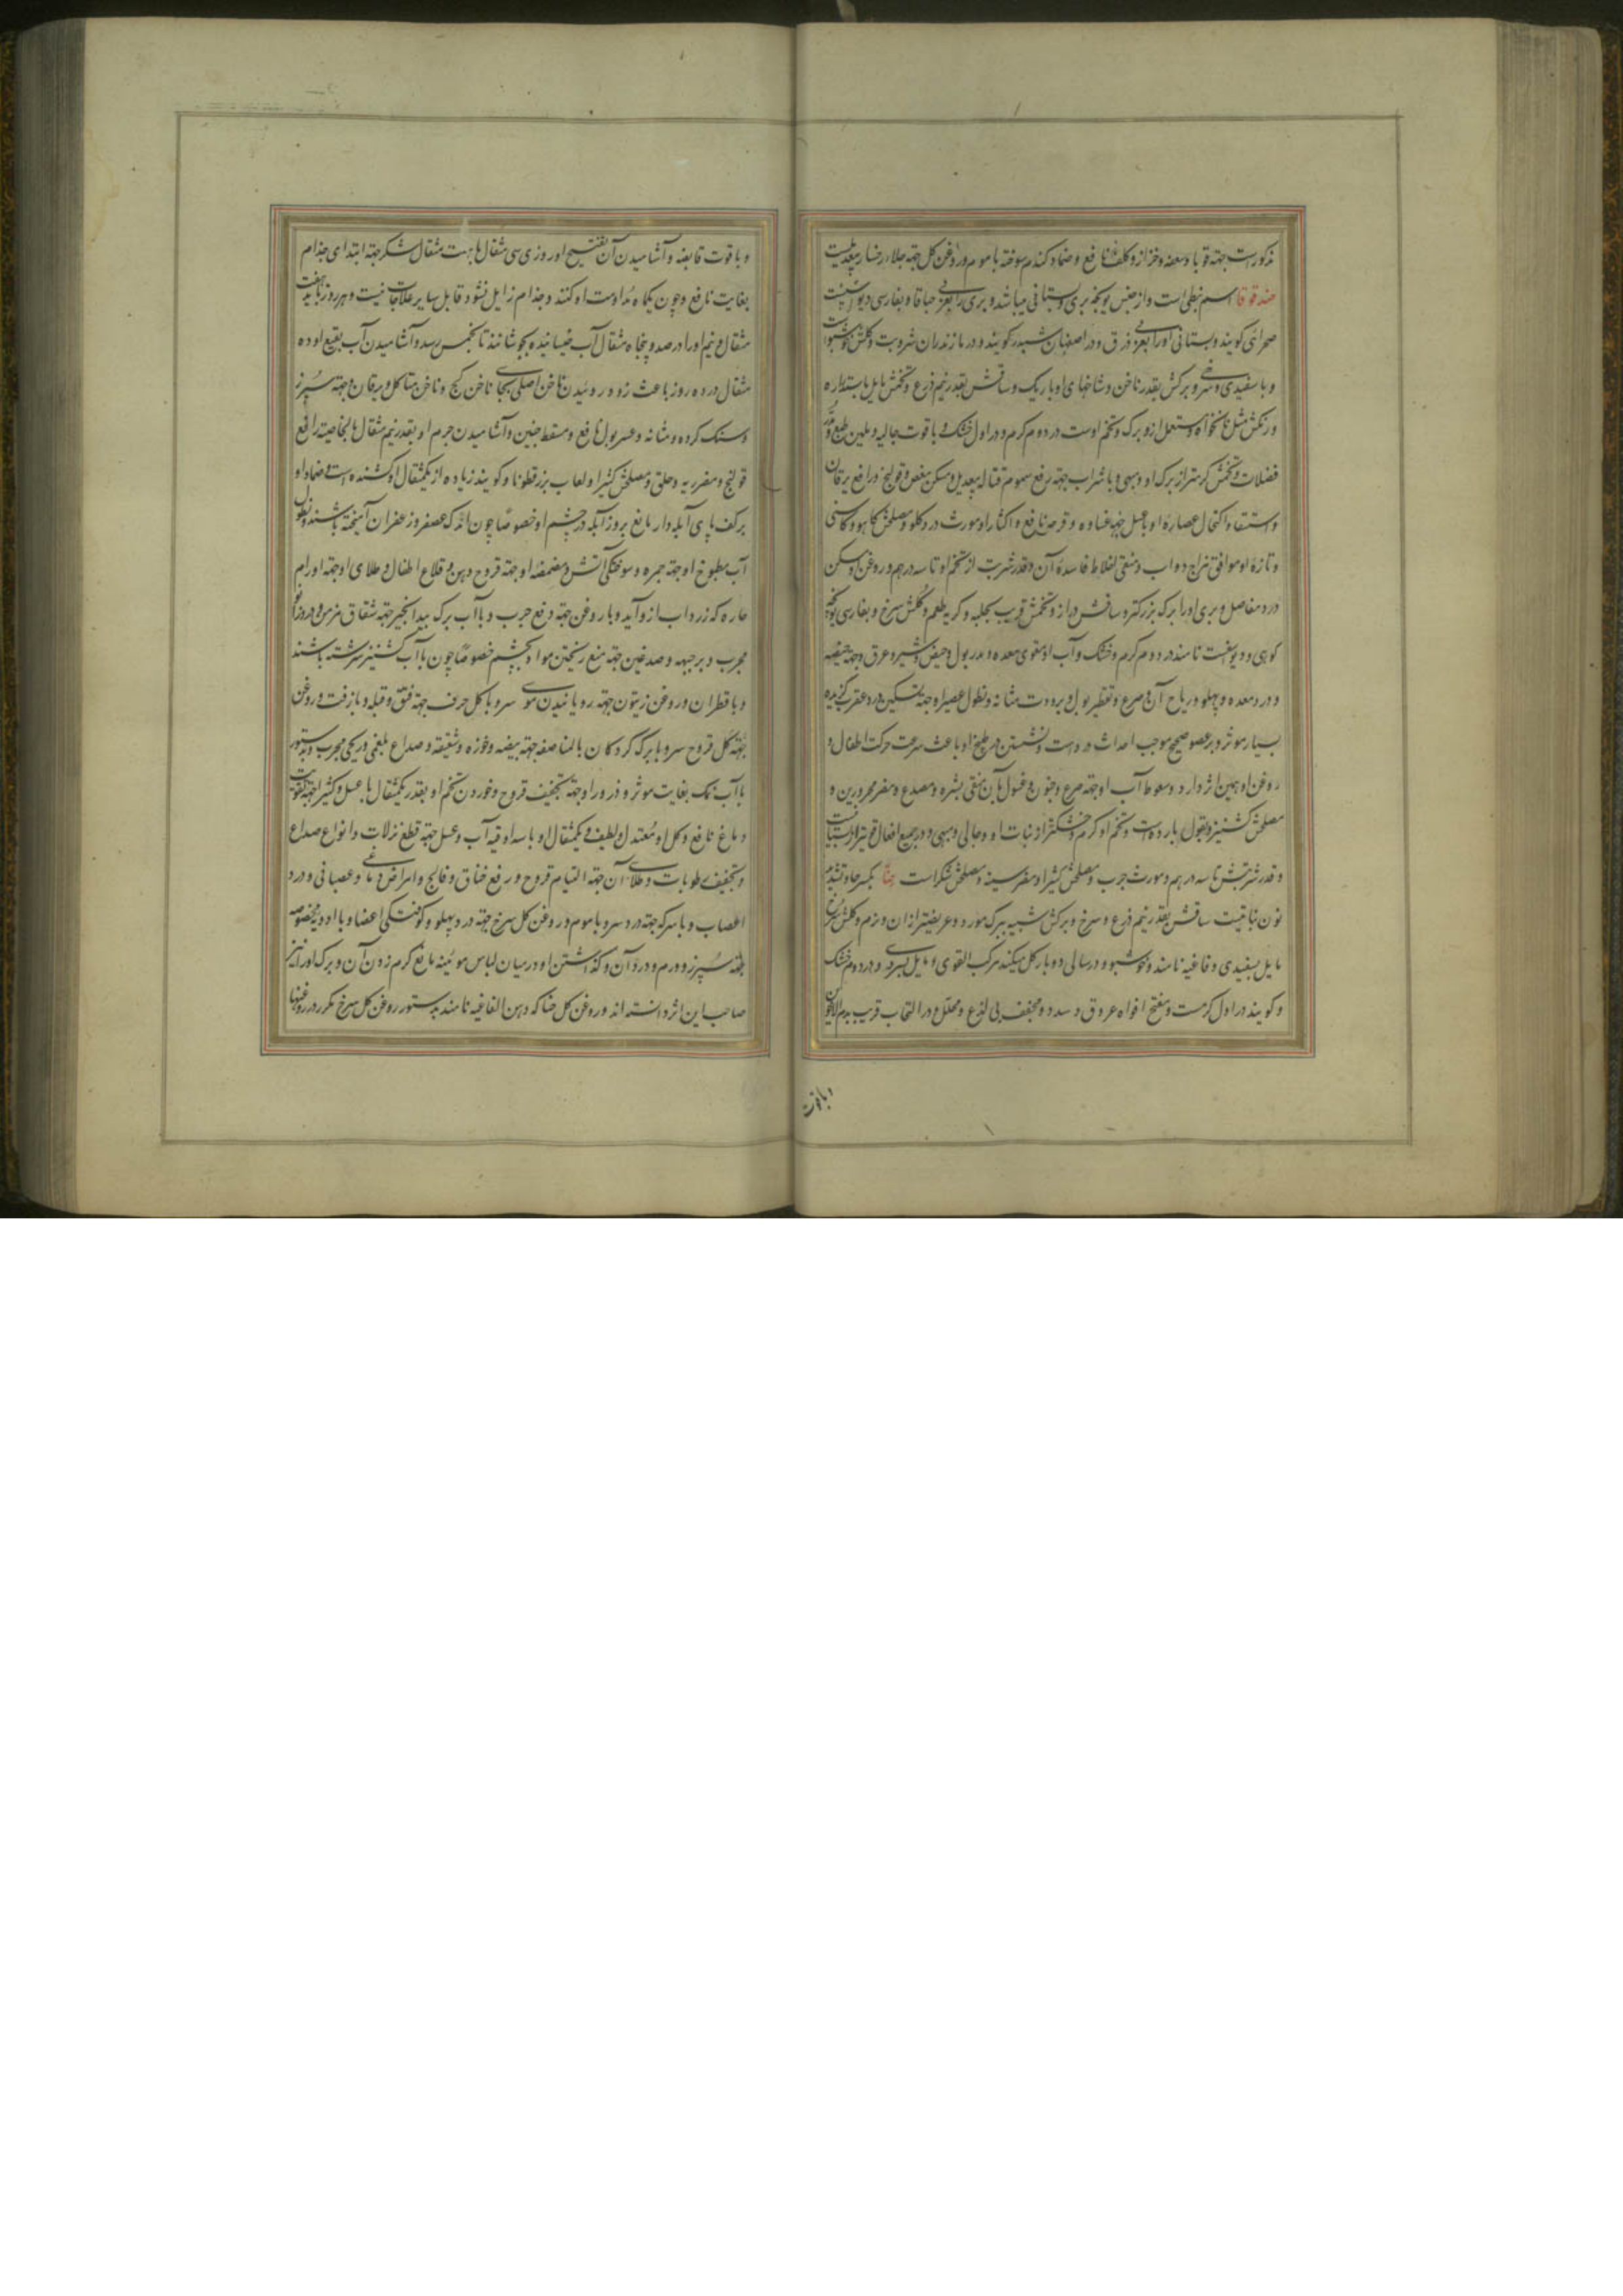 مذکور است جهة قوبا و سعفه و حزاز و کلف نافع و ضماد کندم سوخته با موم و روغن کل جهة جلاء رخسار بیعدیلست
حندقوقا اسم نبطی است و از جنس یونجه بری و بستانی میباشد و بری را بعربی حباقا و بفارسی دیو اسپست
صحرائی کویند و بستانی او را بعربی ذرق و در اصفهان شبدر کویند و در مازندران شروبت و کلش خوشبو
و با سفیدی و سرخی و برکش بقدر ناخن و شاخهای او باریک و ساقش بقدر نیم ذرع و تخمش مایل باستداره
و رنکش مثل نانخواه و مستعمل ازو برک و تخم اوست در دوم کرم و در اول خشک و با قوت جالیه و ملین طبع و مدر
فضلات و تخمش کرمتر از برک او و مبهی و با شراب جهة رفع سموم قتاله بیعدیل و مسکن مغص و قولنج و رافع یرقان
و استسقا و اکتحال عصارهٔ او با عسل جهة غشاوه و قرحه نافع و اکثار او مورث درد کلو و مصلحش کاهو و کاسنی
و تازهٔ او موافق مزاج دواب و منقی اخلاط فاسدهٔ آن و قدر شربت از تخم او تا سه درهم و روغن او مسکن
درد مفاصل و بری او را برک بزرکتر و ساقش دراز و تخمش قریب بحلبه و کریه طعم و کلش سرخ و بفارسی یونجه
کوهی و دیو اسپست نامند در دوم کرم و خشک و آب او مقوی معده و مدر بول و حیض و شیر و عرق و جهة هیضه
و درد معده و پهلو و ریاح آن و صرع و تقطیر بول و برودت مثانه و نطول عصیر او جهة تسکین درد عقرب کزیده
بسیار موثر و بر عضو صحیح موجب احداث درد است و نشستن در طبیخ او باعث سرعت حرکت اطفال و
روغن او همین اثر دارد و سعوط آب او جهة صرع و جنون و غسول بآن منقی بشره و مصدع و مضر محرورین و
مصلحش کشنیز و بقول بارده است و تخم او کرم و خشکتر از نبات او و جالی و مبهی و در جمیع افعال قویتر از نبات
و قدر شربتش تا سه درهم و مورث جرب و مصلحش کثیرا و مضر سینه و مصلحش شکر است حنا بکسر حا و تشدید
نون نباتیست ساقش بقدر نیم ذرع و سرخ و برکش شبیه ببرک مورد و عریضتر از ان و نرم و کلش سرخ
مایل بسفیدی و فاغیه نامند و خوشبو و در سالی دو بار کل میکند مرکب القوی و مایل بسردی و در دوم خشک
و کویند در اول کرمست و مفتح افواه عروق و سدد و مجفف بی لذع و محلل و در التحام قریب بدم الاخوین
و با قوت
و با قوت قابضه و آشامیدن آن نقیع او روزی سی مثقال با بیست مثقال شکر جهة ابتدای جذام
بغایت نافع و چون یکماه مداومت او کنند و جذام زایل نشود قابل سایر علاجات نیست و هر روز باید هفت
مثقال و نیم او را در صد و پنجاه مثقال آب خیسانیده بجوشانند تا بخمس رسد و آشامیدن آب نقیع او ده
مثقال در ده روز باعث زود روئیدن ناخن اصلی بجای ناخن کج و ناخن متاکل و یرقان و جهة سپرز
و سنک کرده و مثانه و عسر بول نافع و مسقط جنین و آشامیدن جرم او بقدر نیم مثقال بالخاصیة رافع
قولنج و مضر ریه و حلق و مصلحش کثیرا و لعاب بزرقطونا و کویند زیاده از یکمثقال او کشنده است و ضماد او
بر کف پای آبله دار مانع بروز آبله در چشم او خصوصًا چون اندک عصفر و زعفران آمیخته باشند و نطول
آب مطبوخ او جهة جمره و سوختکی آتش و مضمضه او جهة قروح دهن و قلاع اطفال و طلای او جهة اورام
حاره که زرداب ازو آید و با روغن جهة رفع جرب و با آب برک بید انجیر جهة شقاق مزمن و درد زانو
مجرب و بر جبهه و صدغین جهة منع ریختن مواد بچشم خصوصًا چون با آب کشنیز سرشته باشند
و با قطران و روغن زیتون جهة رویانیدن موی سر و با کل حرف جهة فتق و قیله و با زفت و روغن
جهة کل قروح سر و با برک کردکان بالمناصفه جهة بیضه و خوزه و شقیقه و صداع بلغمی و ریحی مجرب و بدستور
با آب نمک بغایت موثر و ذرور او جهة تجفیف قروح و خوردن تخم او بقدر یکمثقال با عسل و کثیرا جهة تقویت
دماغ نافع و کل او معتدل و لطیف و یکمثقال او با سه اوقیه آب و عسل جهة قطع نزلات و انواع صداع
و تجفیف رطوبات و طلای آن جهة التیام قروح و رفع خناق و فالج و امراض دماغی و عصبانی و درد
اعصاب و با سرکه جهة درد سر و با موم و روغن کل سرخ جهة درد پهلو و کوفتکی اعضا و با ادویه مخصوصه
جهة سپرز و ورم و درد آن و کذاشتن او در میان لباس موئینه مانع کرم زدن آن و برک او را نیز
صاحب این اثر دانسته اند و روغن کل حنا که دهن الفاغیه نامند بدستور روغن کل سرخ مکرر در روغنها